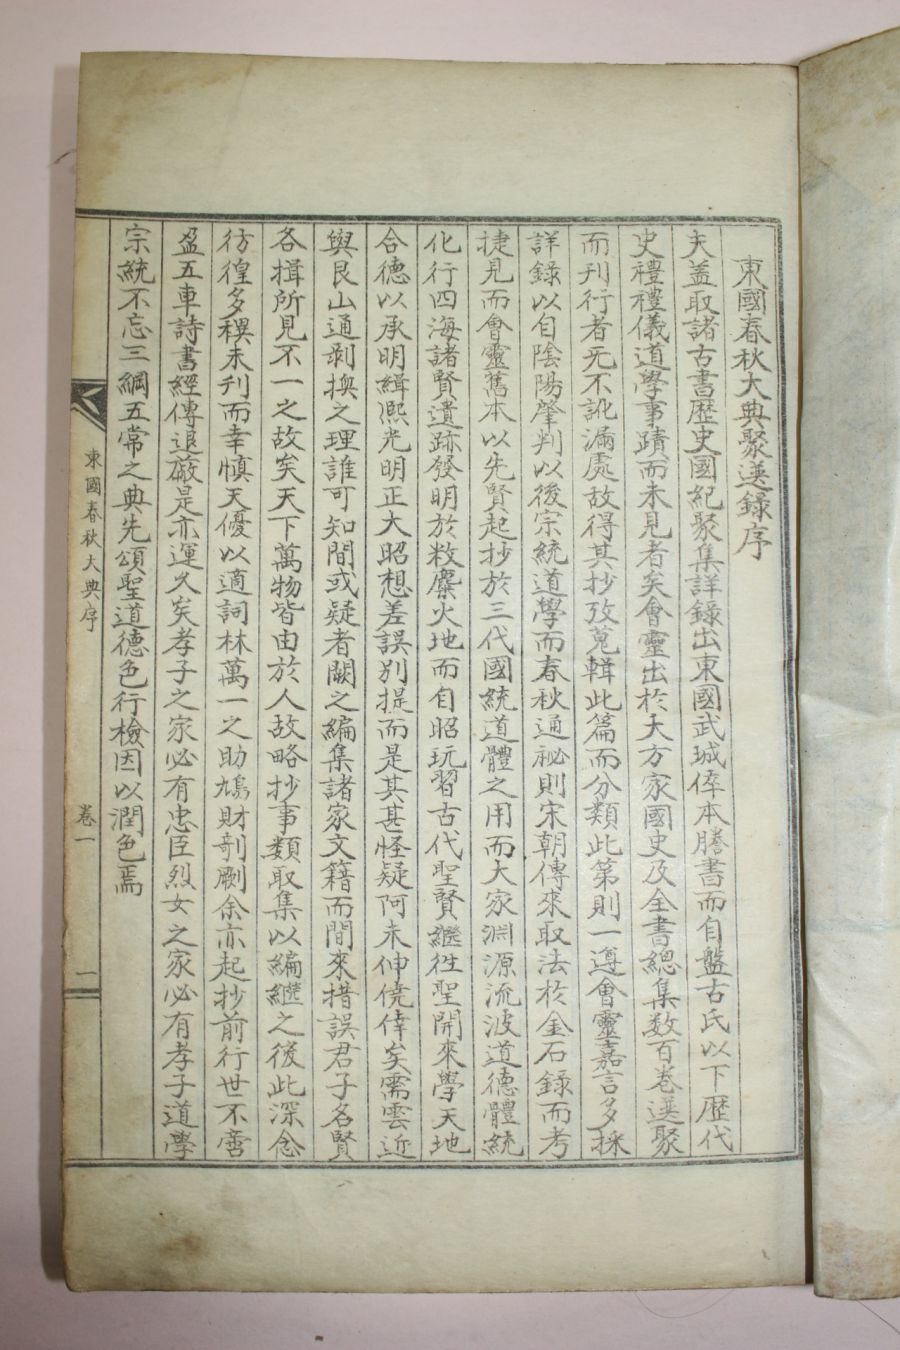 東國春秋大典聚選錄序
夫盖取諸古書歷史國紀聚集詳錄出東國武城倅本謄書而自盤古氏以下歷代
史禮禮儀道學事蹟而未見者矣會靈出於大方家國史及全書總集数百卷選聚
而刊行者无不訛漏處故得其抄攷蒐輯此篇而分類此第則一遵會靈嘉言多採
詳錄以自陰陽肇判以後宗統道學而春秋通祕則宋朝傳來取法於金石錄而考
捷見而會靈舊本以先賢起抄於三代國統道體之用而大家淵源流波道德體統
化行四海諸賢遺跡發明於敉麋火地而自昭玩習古代聖賢繼徃聖開來學天地
合德以承明緝熙光明正大昭想差誤別提而是其甚怪疑阿未伸僥倖矣需雲近
與艮山通剥換之理誰可知間或疑者闕之編集諸家文籍而間來措誤君子名賢
各揖所見不一之故矣天下萬物皆由於人故略抄事類取集以編繼之後此深念
彷徨多稘未刊而幸慎天優以適詞林萬一之助鳩財剞劂余亦起抄前行世不啻
盈五車詩書經傳退厳是亦運久矣孝子之家必有忠臣烈女之家必有孝子道學
宗統不忘三綱五常之典先頌聖道德色行檢因以潤色焉
東國春秋大典序 卷一 一